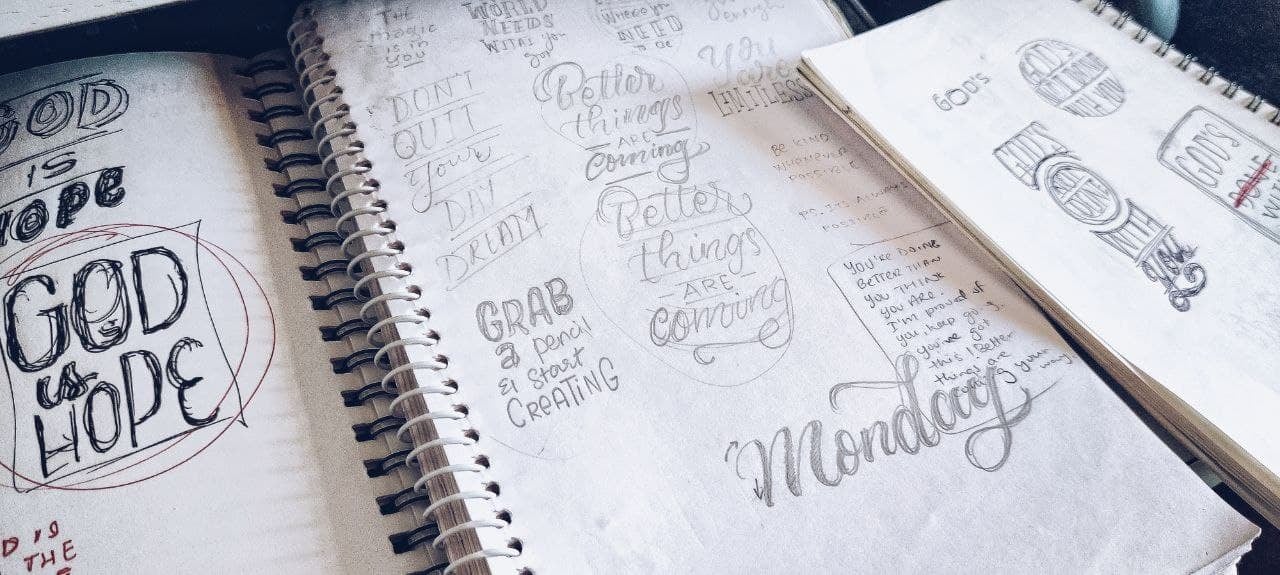 GOD
IS
HOPE
GOD
is
HOPE
D IS
THE
THE
magic
is in
you
WORLD
NEEDS
WHAT you
got
NEED
TO BE
enough
You
are
LIMITLESS
DON'T
QUIT
Your
DAY
DREAM
Better
things
ARE
coming
Better
things
ARE
coming
GRAB
a pencil
& start
CREATING
BE KIND
WHENEVER
POSSIBLE
PS. ITS ALWAYS
POSSIBLE
YOU'RE DOING
BETTER THAN
YOU THINK
you ARE.
I'm proud of
you, keep going.
you've got
this! Better
things are
coming your
way
Monday
GOD'S
GOD'S
GOT
YOU
GOD'S
WITH
You
GOD'S